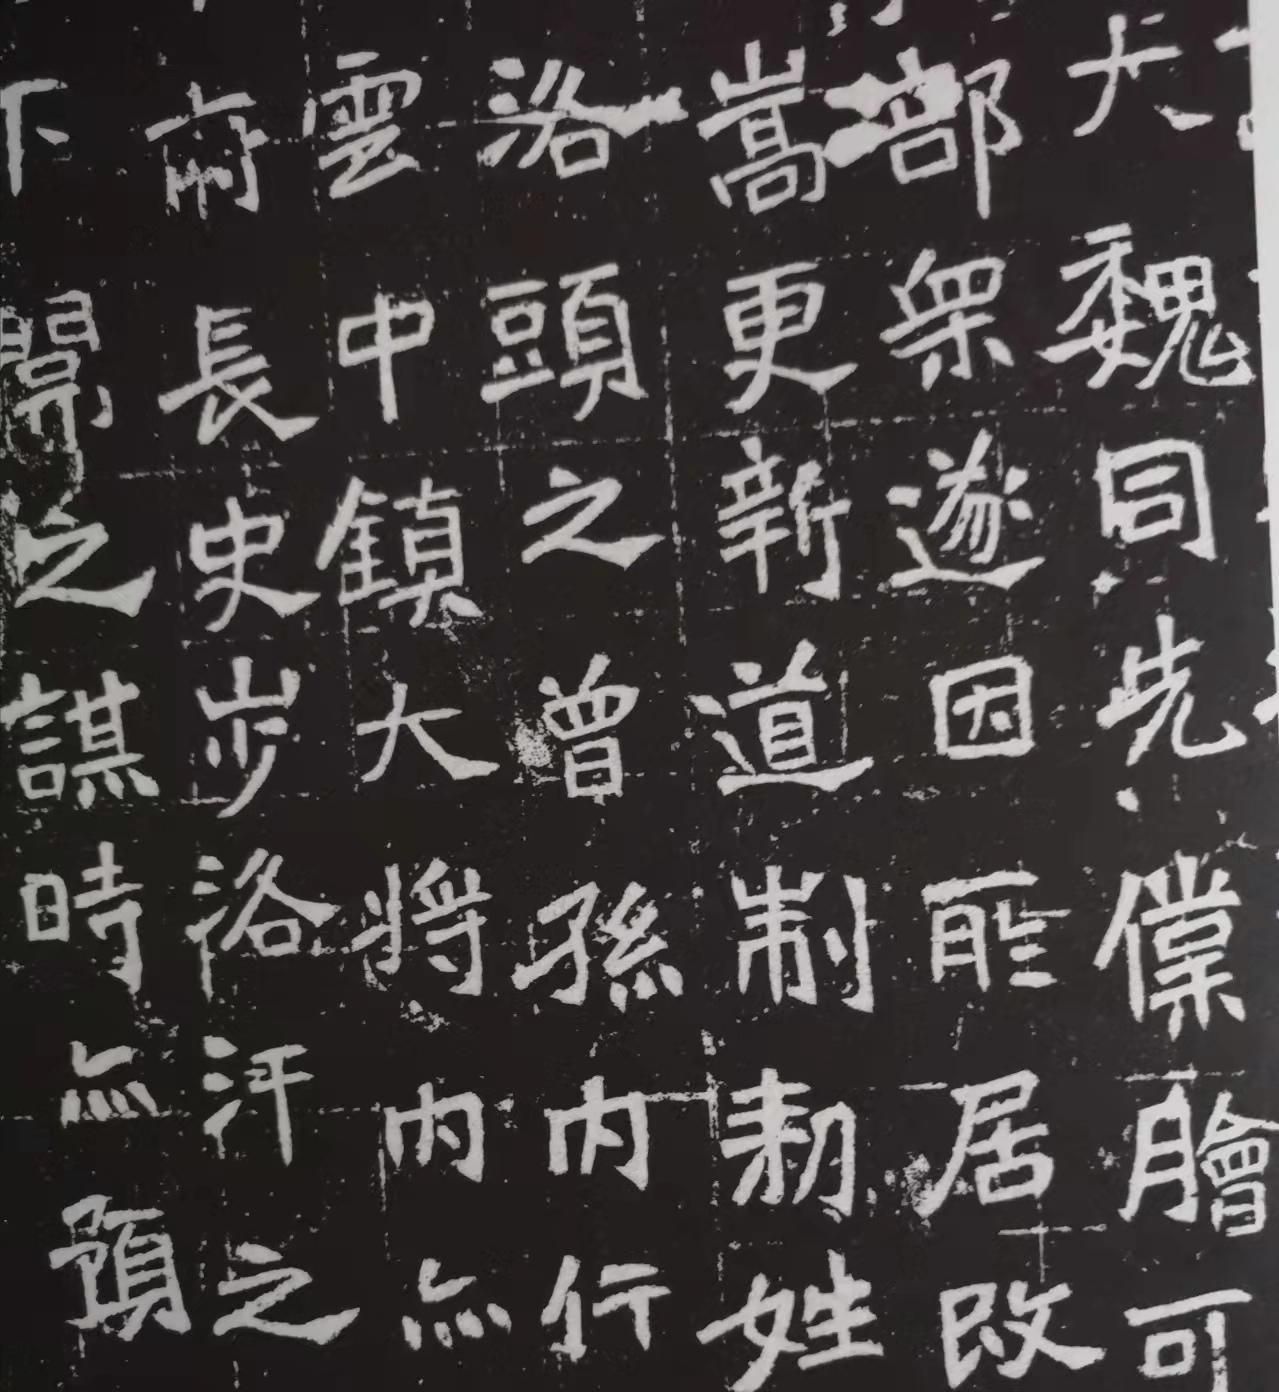 大魏同先僕膾可
部眾遂因所居改
嵩更新道制勅姓
洛頭之曾孫內行
雲中鎮大將內亦
府長史步洛汗之
下關之謀時亦預